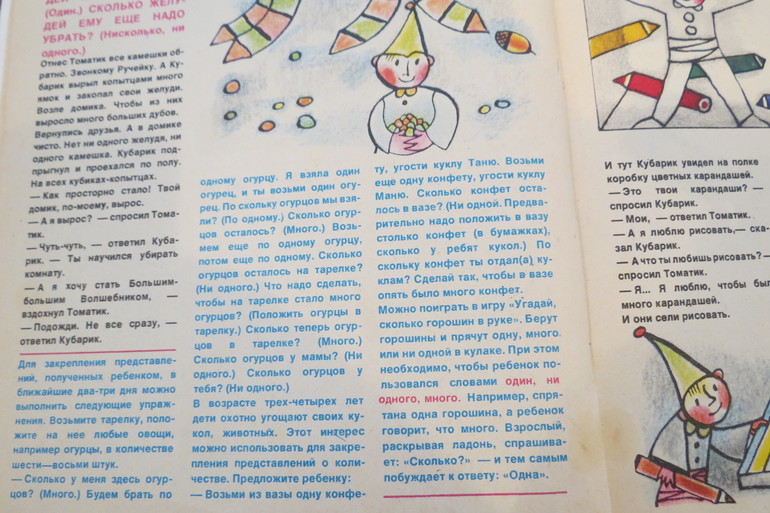 (Один.) СКОЛЬКО ЖЕЛУ-
ДЕЙ ЕМУ ЕЩЕ НАДО
УБРАТЬ? (Нисколько, ни
одного.)
Отнес Томатик все камешки об-
ратно. Звонкому Ручейку. А Ку-
барик вырыл копытцами много
ямок и закопал свои желуди.
Возле домика. Чтобы из них
выросло много больших дубов.
Вернулись друзья. А в домике
чисто. Нет ни одного желудя, ни
одного камешка. Кубарик под-
прыгнул и проехался по полу.
На всех кубиках-копытцах.
— Как просторно стало! Твой
домик, по-моему, вырос.
— А я вырос? — спросил Тома-
тик.
— Чуть-чуть, — ответил Куба-
рик. — Ты научился убирать
комнату.
— А я хочу стать Большим-
большим Волшебником, —
вздохнул Томатик.
— Подожди. Не все сразу, —
ответил Кубарик.
Для закрепления представле-
ний, полученных ребенком, в
ближайшие два-три дня можно
выполнить следующие упраж-
нения. Возьмите тарелку, поло-
жите на нее любые овощи,
например огурцы, в количестве
шести—восьми штук.
— Сколько у меня здесь огур-
цов? (Много.) Будем брать по
одному огурцу. Я взяла один
огурец, и ты возьми один огу-
рец. По скольку огурцов мы взя-
ли? (По одному.) Сколько огур-
цов осталось? (Много.) Возь-
мем еще по одному огурцу,
потом еще по одному. Сколько
огурцов осталось на тарелке?
(Ни одного.) Что надо сделать,
чтобы на тарелке стало много
огурцов? (Положить огурцы в
тарелку.) Сколько теперь огур-
цов в тарелке? (Много.)
Сколько огурцов у мамы? (Ни
одного.) Сколько огурцов у
тебя? (Ни одного.)
В возрасте трех-четырех лет
дети охотно угощают своих ку-
кол, животных. Этот интерес
можно использовать для закре-
пления представлений о коли-
честве. Предложите ребенку:
— Возьми из вазы одну конфе-
ту, угости куклу Таню. Возьми
еще одну конфету, угости куклу
Маню. Сколько конфет оста-
лось в вазе? (Ни одной. Предва-
рительно надо положить в вазу
столько конфет (в бумажках),
сколько у ребят кукол.) По
скольку конфет ты отдал(а) ку-
клам? Сделай так, чтобы в вазе
опять было много конфет.
Можно поиграть в игру «Угадай,
сколько горошин в руке». Берут
горошины и прячут одну, много
или ни одной в кулаке. При этом
необходимо, чтобы ребенок по-
льзовался словами один, ни
одного, много. Например, спря-
тана одна горошина, а ребенок
говорит, что много. Взрослый,
раскрывая ладонь, спрашива-
ет: «Сколько?» — и тем самым
побуждает к ответу: «Одна».
И тут Кубарик увидел на полке
коробку цветных карандашей.
— Это твои карандаши? —
спросил Кубарик.
— Мои, — ответил Томатик.
— А я люблю рисовать,— ска-
зал Кубарик.
— А что ты любишь рисовать? —
спросил Томатик.
— Я... Я люблю, чтобы был
много карандашей.
И они сели рисовать.